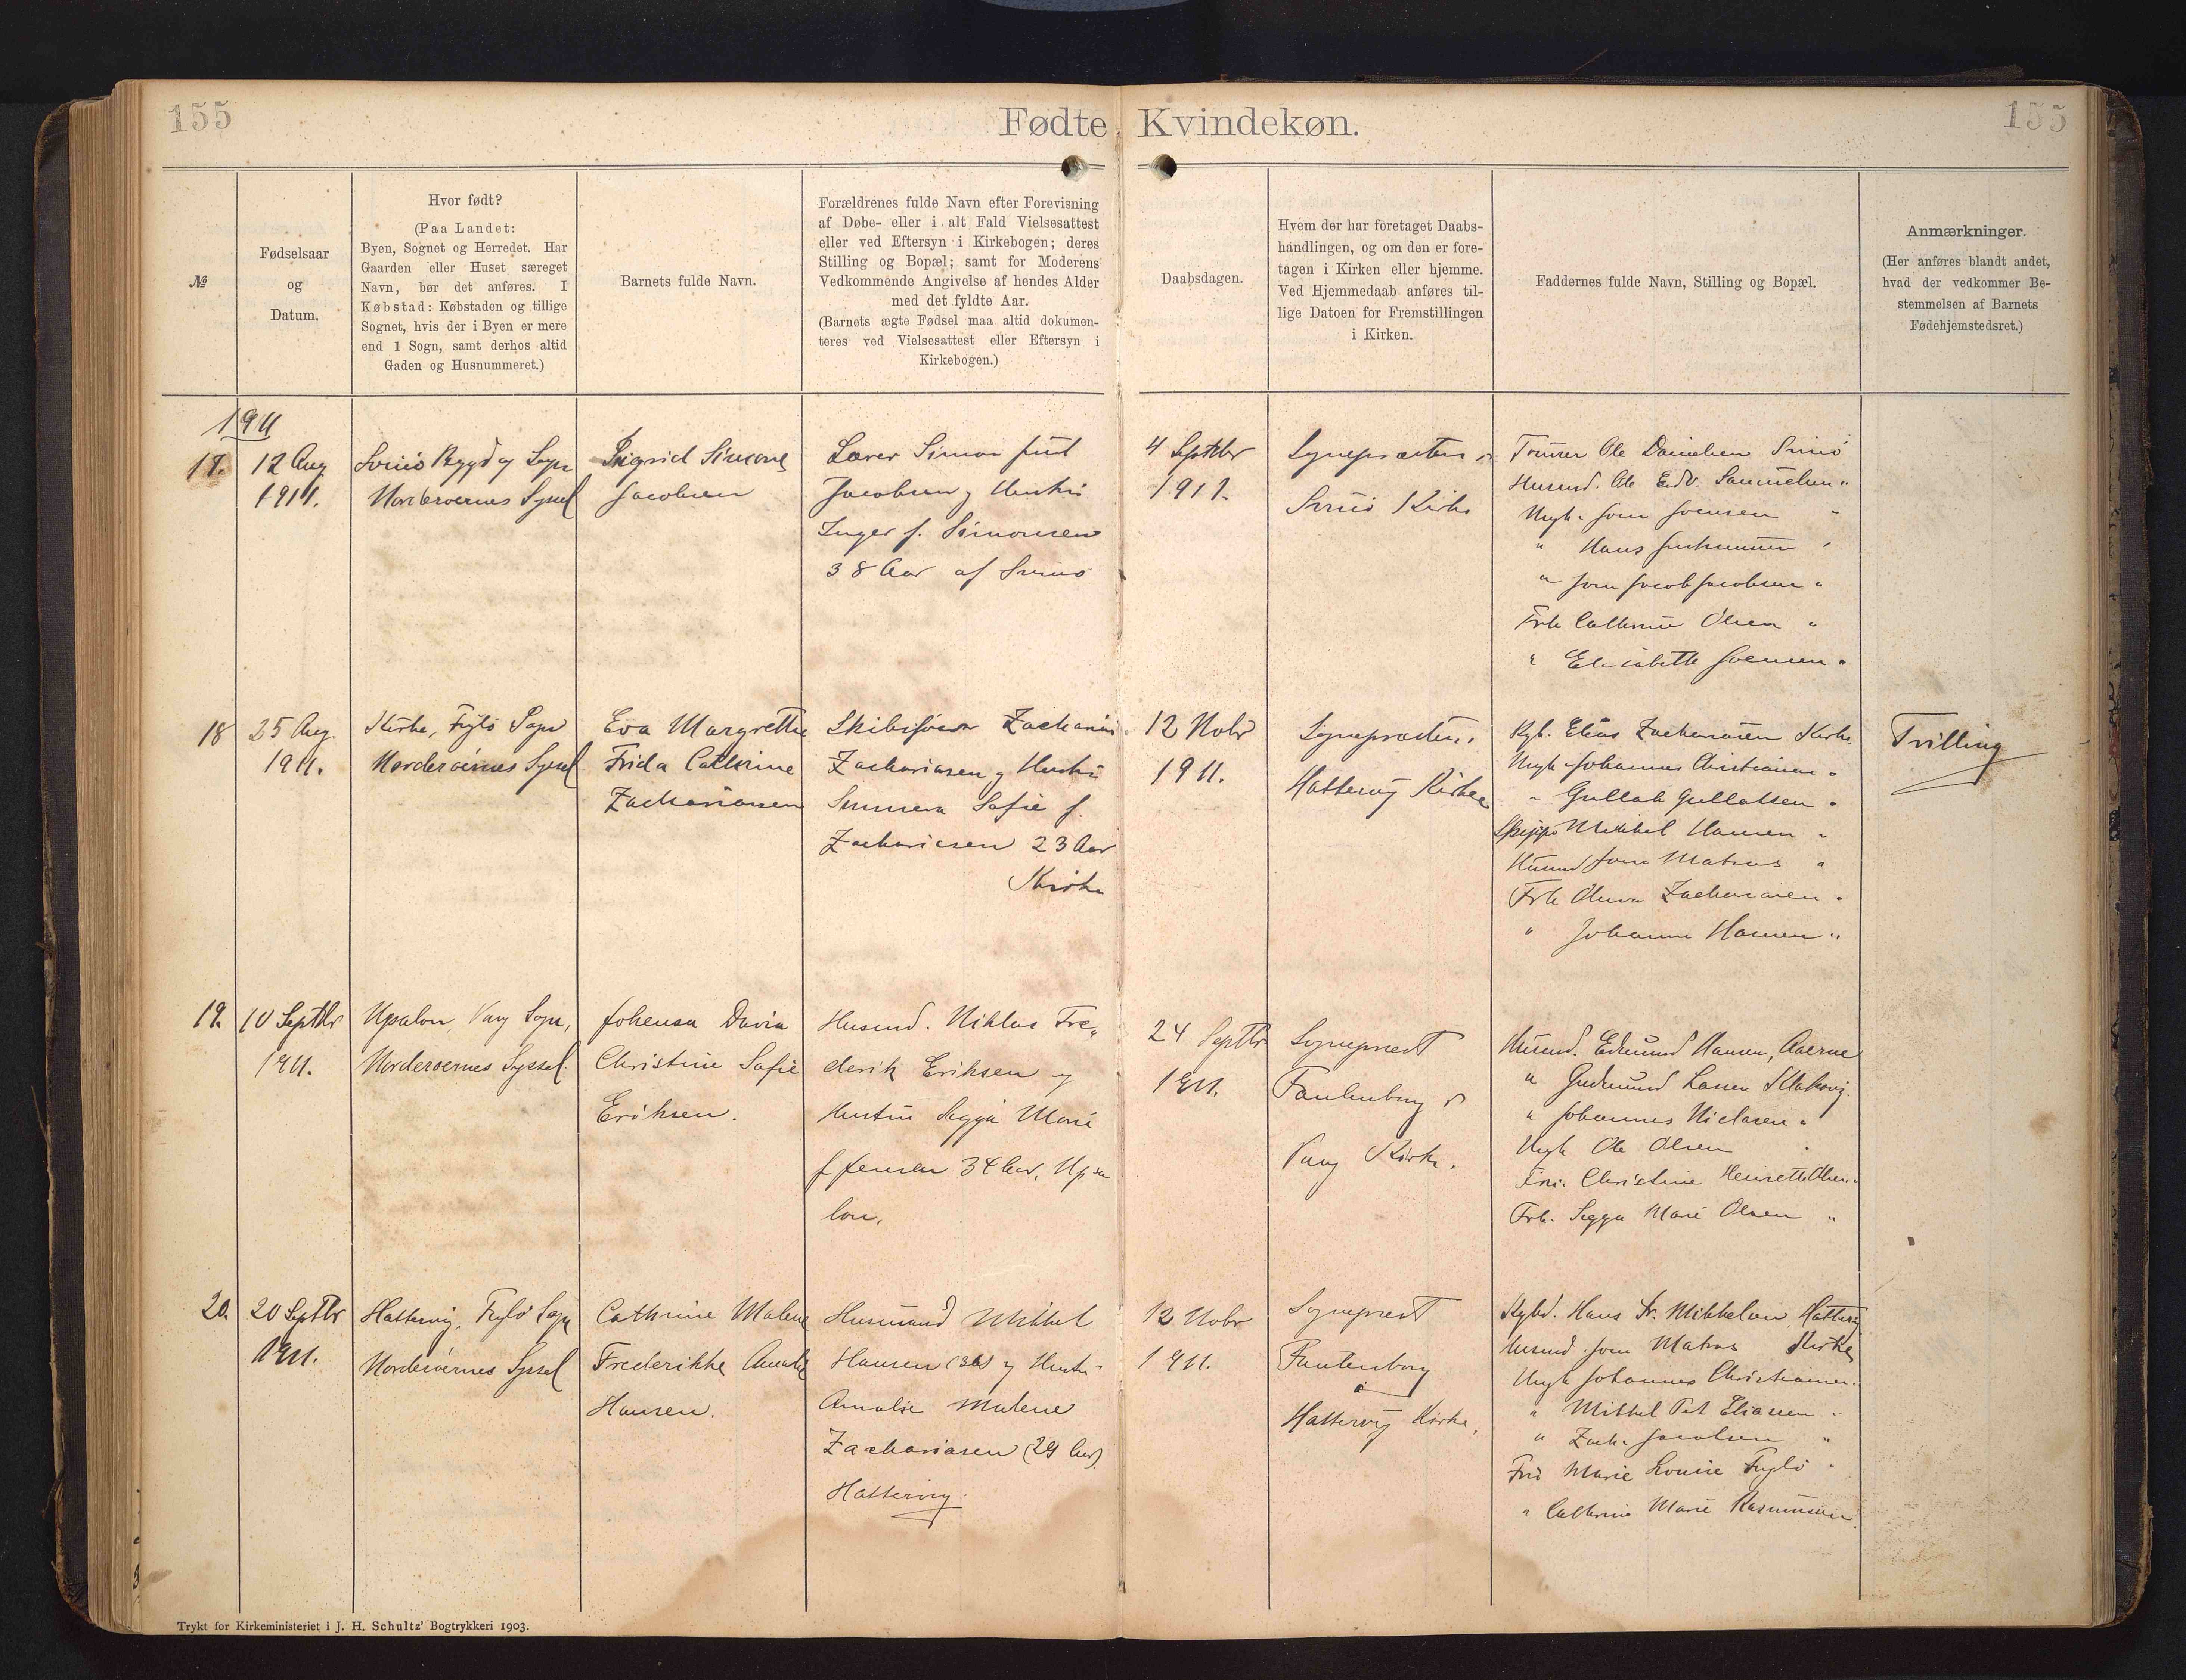 155
Fødte Kvindekøn.
155
№
Fødselsaar
og
Datum.
Hvor født?
(Paa Landet:
Byen, Sognet og Herredet. Har
Gaarden eller Huset særeget
Navn, bør det anføres. I
Købstad: Købstaden og tillige
Sognet, hvis der i Byen er mere
end 1 Sogn, samt derhos altid
Gaden og Husnummeret.)
Barnets fulde Navn.
Forældrenes fulde Navn efter Forevisning
af Døbe- eller i alt Fald Vielsesattest
eller ved Eftersyn i Kirkebogen; deres
Stilling og Bopæl; samt for Moderens
Vedkommende Angivelse af hendes Alder
med det fyldte Aar.
(Barnets ægte Fødsel maa altid dokumen-
teres ved Vielsesattest eller Eftersyn i
Kirkebogen.)
Daabsdagen.
Hvem der har foretaget Daabs-
handlingen, og om den er fore-
tagen i Kirken eller hjemme.
Ved Hjemmedaab anføres til-
lige Datoen for Fremstillingen
i Kirken.
Faddernes fulde Navn, Stilling og Bopæl.
Anmærkninger.
(Her anføres blandt andet,
hvad der vedkommer Be-
stemmelsen af Barnets
Fødehjemstedsret.)
1911
17.
12 Aug
1911.
Svinö Bygd og Sogn
Norderøernes Syssel
Sigrid Simone
Jacobsen
Lærer Simon
Jacobsen og Hustru
Inger f. Simonsen
38 Aar af Svinö
4 Septbr
1911.
Sognepræsten i
Svinö Kirke
Ole Danielsen Svinö
Husmd. Ole Edv. Samuelsen "
Ungk. Joen Joensen "
" Hans "
" Joen Jacob Jacobsen "
Frk Cathrine Olsen "
" Elisabeth Joensen "
18
25 Aug.
1911.
Kirke, Fuglö Sogn
Norderøernes Syssel
Eva Margrethe
Frida Cathrine
Zachariasen
Skibsfører Zacharias
Zachariasen og Hustru
Sunneva Sofie f.
Zachariasen 23 Aar
Kirke
12 Novbr
1911.
Sognepræsten i
Hattervig Kirke
Kgb. Elias Zachariasen Kirke
Ungk. Johannes Christiansen "
" Gullak Gullaksen "
Mikkel Hansen "
Husmd Joen Matras "
Frk Oluva Zachariasen "
" Johanne Hansen "
Tvilling
19.
10 Septbr
1911.
Upsalon, Vaag Sogn,
Norderøernes Syssel
Johensa Davia
Christine Sofie
Eriksen.
Husmd. Niklas Fre-
derik Eriksen og
Hustru Sigga Marie
f Jensen 34 Aar, Upsa
lon.
24 Septbr
1911.
Sognepræst
Fautenborg i
Vaag Kirke.
Husmd. Edmund Hansen, Aaerne
" Gudmund Lassen Klaksvig.
" Johannes Niclasen "
Ungk Ole Olsen "
Fru. Christine Henriette Olsen "
Frk. Sigga Marie Olsen "
20.
20 Septbr
1911.
Hattervig, Fuglö Sogn
Norderøernes Syssel
Cathrine Malene
Frederikke Amalie
Hansen.
Husmand Mikkel
Hansen (36) og Hustru
Amalie Malene
Zachariasen (29 Aar)
Hattervig.
12 Novbr
1911.
Sognepræst
Fautenborg
i
Hattervig Kirke.
Kgbd. Hans Fr. Mikkelsen Hattervig
Husmd. Joen Matras Kirke
Ungk Johannes Christiansen "
" Mikkel Pet Eliasen "
" Zach. Jacobsen "
Fru Marie Louise Fuglö "
" Cathrine Marie Rasmussen
Trykt for Kirkeministeriet i J. H. Schultz' Bogtrykkeri 1903.